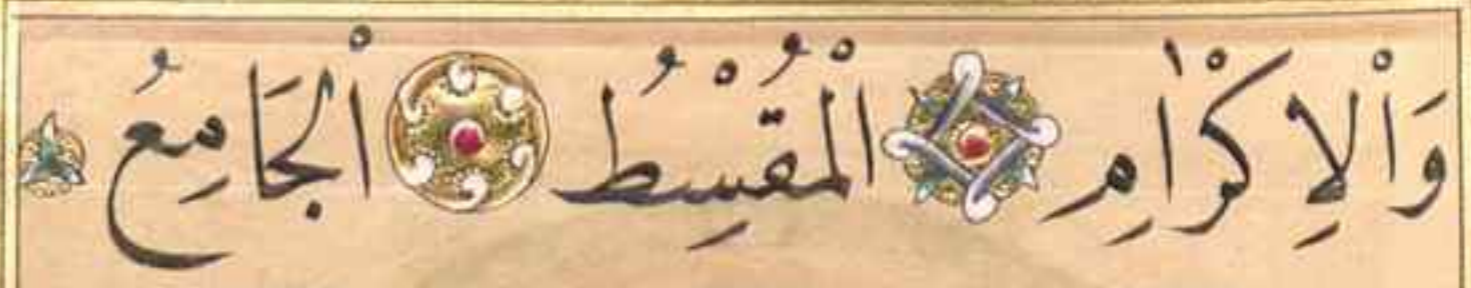 وَالْاِكْرٰامِ الْمُقْسِطُ الْجَامِعُ